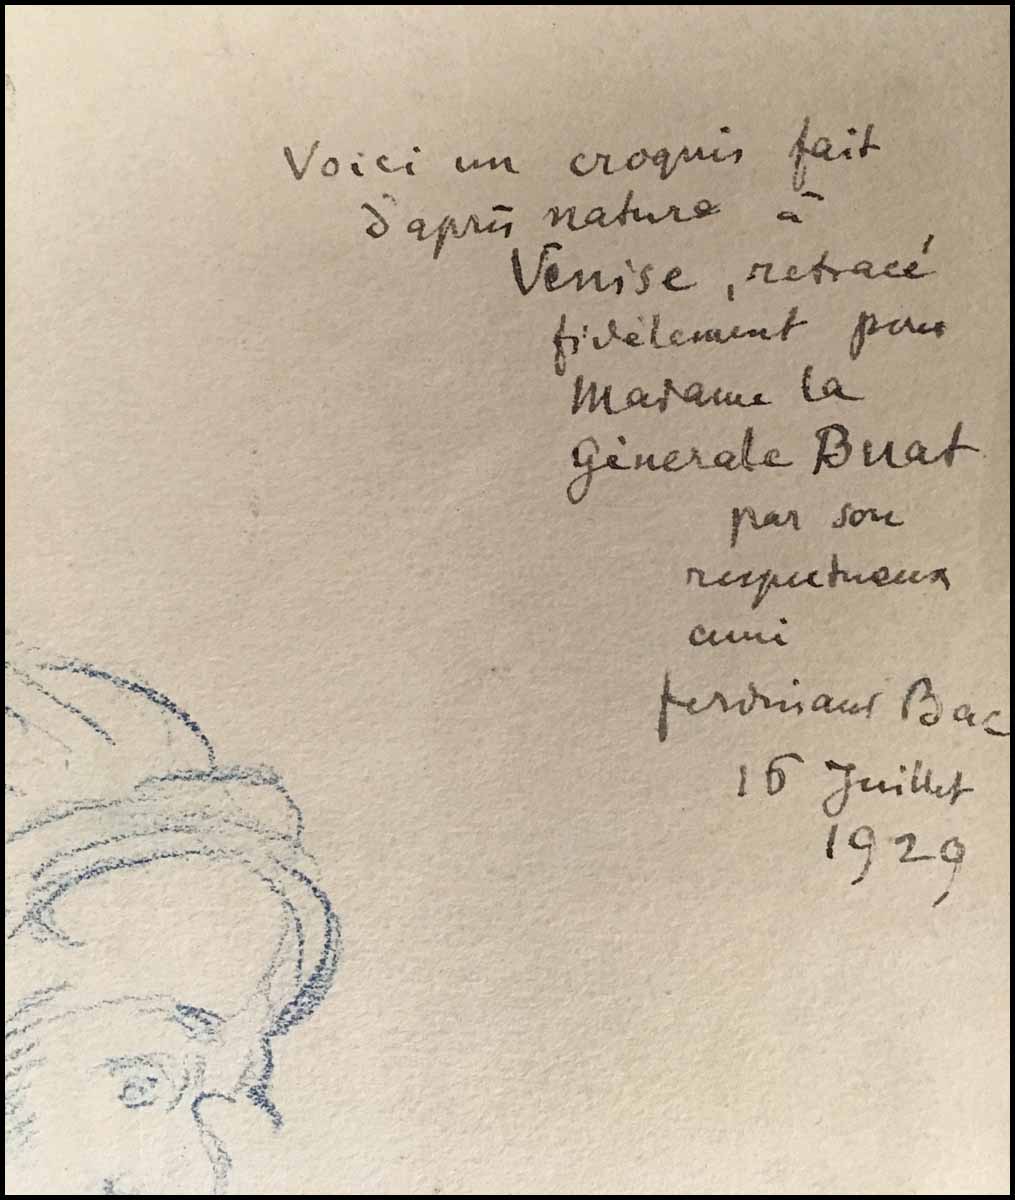 Voici un croquis fait
d'après nature à
Venise, retracé
fidèlement pour
Madame la
Générale Buat
par son
respectueux
ami
Ferdinand Bac
16 Juillet
1929